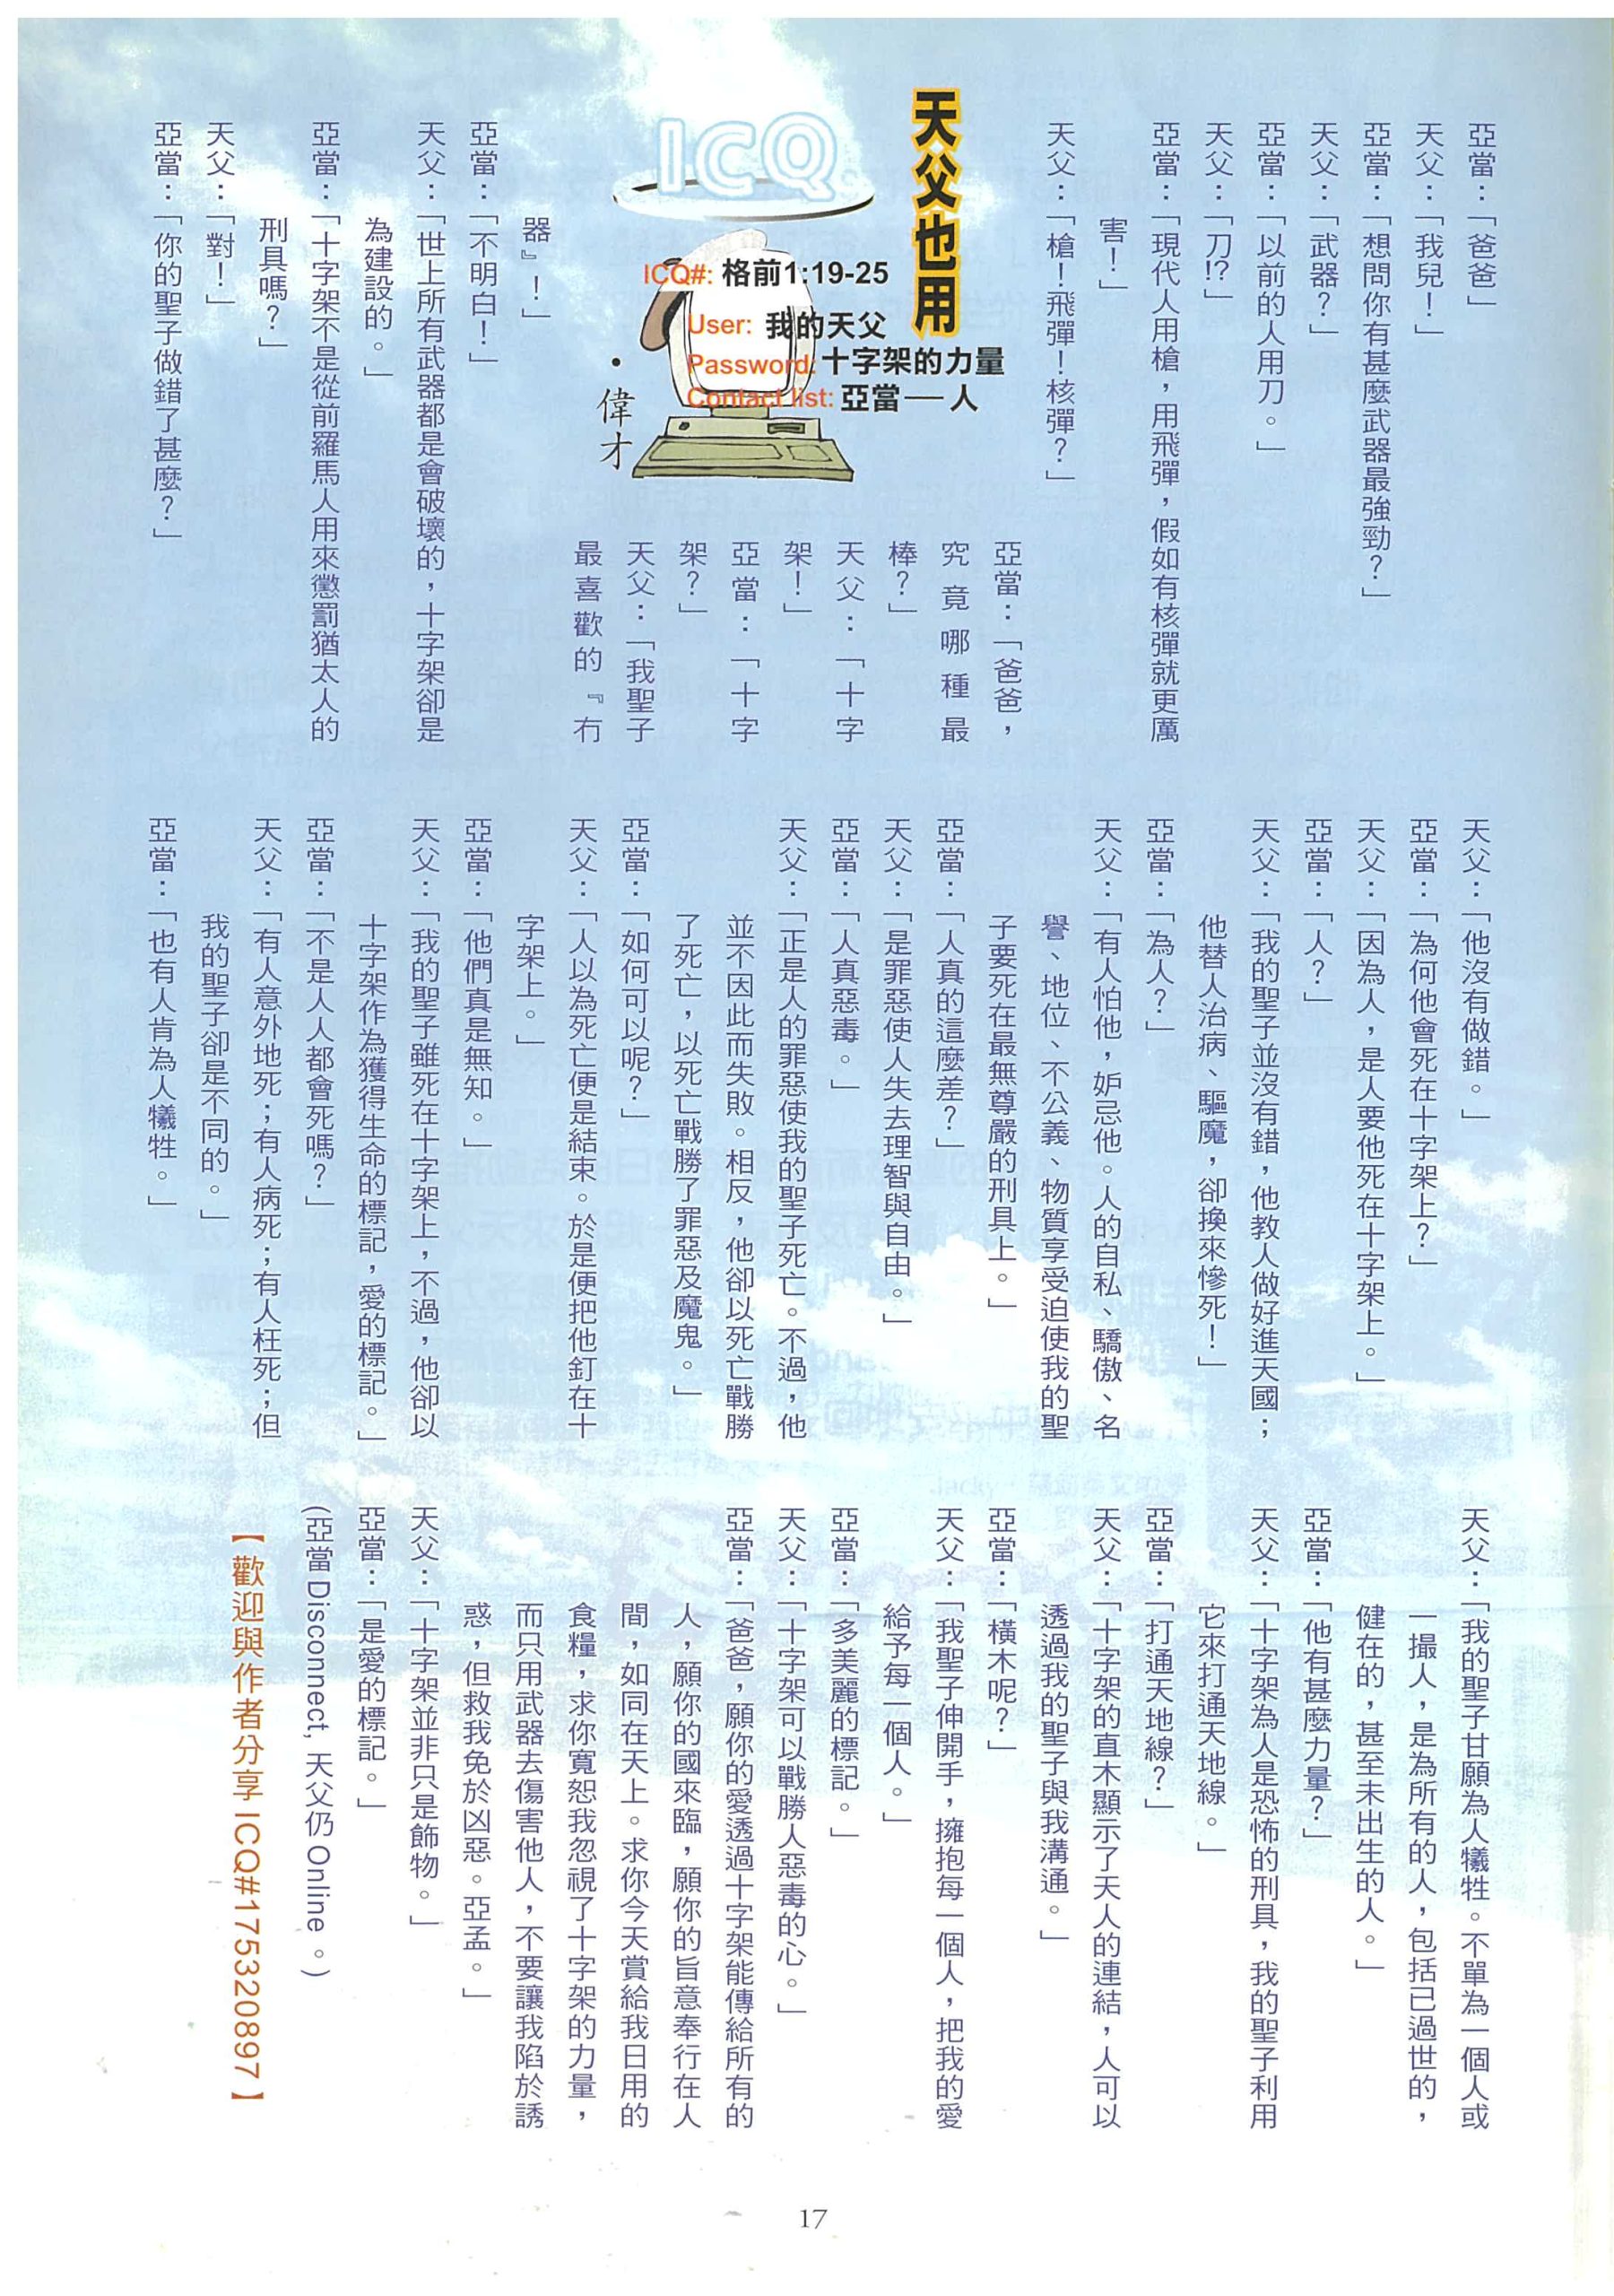 天父也用
ICQ
ICQ#: 格前1:19-25
User: 我的天父
Password: 十字架的力量
Contact list: 亞當——人
•偉才
亞當：「爸爸」
天父：「我兒！」
亞當：「想問你有甚麼武器最強勁？」
天父：「武器？」
亞當：「以前的人用刀。」
天父：「刀!?」
亞當：「現代人用槍，用飛彈，假如有核彈就更厲
害！」
天父：「槍！飛彈！核彈？」
亞當：「爸爸，
究竟哪種最
棒？」
天父：「十字
架！」
亞當：「十字
架？」
天父：「我聖子
最喜歡的『冇
器』！」
亞當：「不明白！」
天父：「世上所有武器都是會破壞的，十字架卻是
為建設的。」
亞當：「十字架不是從前羅馬人用來懲罰猶太人的
刑具嗎？」
天父：「對！」
亞當：「你的聖子做錯了甚麼？」
天父：「他沒有做錯。」
亞當：「為何他會死在十字架上？」
天父：「因為人，是人要他死在十字架上。」
亞當：「人？」
天父：「我的聖子並沒有錯，他教人做好進天國；
他替人治病、驅魔，卻換來慘死！」
亞當：「為人？」
天父：「有人怕他，妒忌他。人的自私、驕傲、名
譽、地位、不公義、物質享受迫使我的聖
子要死在最無尊嚴的刑具上。」
亞當：「人真的這麼差？」
天父：「是罪惡使人失去理智與自由。」
亞當：「人真惡毒。」
天父：「正是人的罪惡使我的聖子死亡。不過，他
並不因此而失敗。相反，他卻以死亡戰勝
了死亡，以死亡戰勝了罪惡及魔鬼。」
亞當：「如何可以呢？」
天父：「人以為死亡便是結束。於是便把他釘在十
字架上。」
亞當：「他們真是無知。」
天父：「我的聖子雖死在十字架上，不過，他卻以
十字架作為獲得生命的標記，愛的標記。」
亞當：「不是人人都會死嗎？」
天父：「有人意外地死；有人病死；有人枉死；但
我的聖子卻是不同的。」
亞當：「也有人肯為人犧牲。」
天父：「我的聖子甘願為人犧牲。不單為一個人或
一撮人，是為所有的人，包括已過世的，
健在的，甚至未出生的人。」
亞當：「他有甚麼力量？」
天父：「十字架為人是恐怖的刑具，我的聖子利用
它來打通天地線。」
亞當：「打通天地線？」
天父：「十字架的直木顯示了天人的連結，人可以
透過我的聖子與我溝通。」
亞當：「橫木呢？」
天父：「我聖子伸開手，擁抱每一個人，把我的愛
給予每一個人。」
亞當：「多美麗的標記。」
天父：「十字架可以戰勝人惡毒的心。」
亞當：「爸爸，願你的愛透過十字架能傳給所有的
人，願你的國來臨，願你的旨意奉行在人
間，如同在天上。求你今天賞給我日用的
食糧，求你寬恕我忽視了十字架的力量，
而只用武器去傷害他人，不要讓我陷於誘
惑，但救我免於凶惡。亞孟。」
天父：「十字架並非只是飾物。」
亞當：「是愛的標記。」
(亞當 Disconnect, 天父仍 Online。)
【歡迎與作者分享 ICQ#175320897】
17